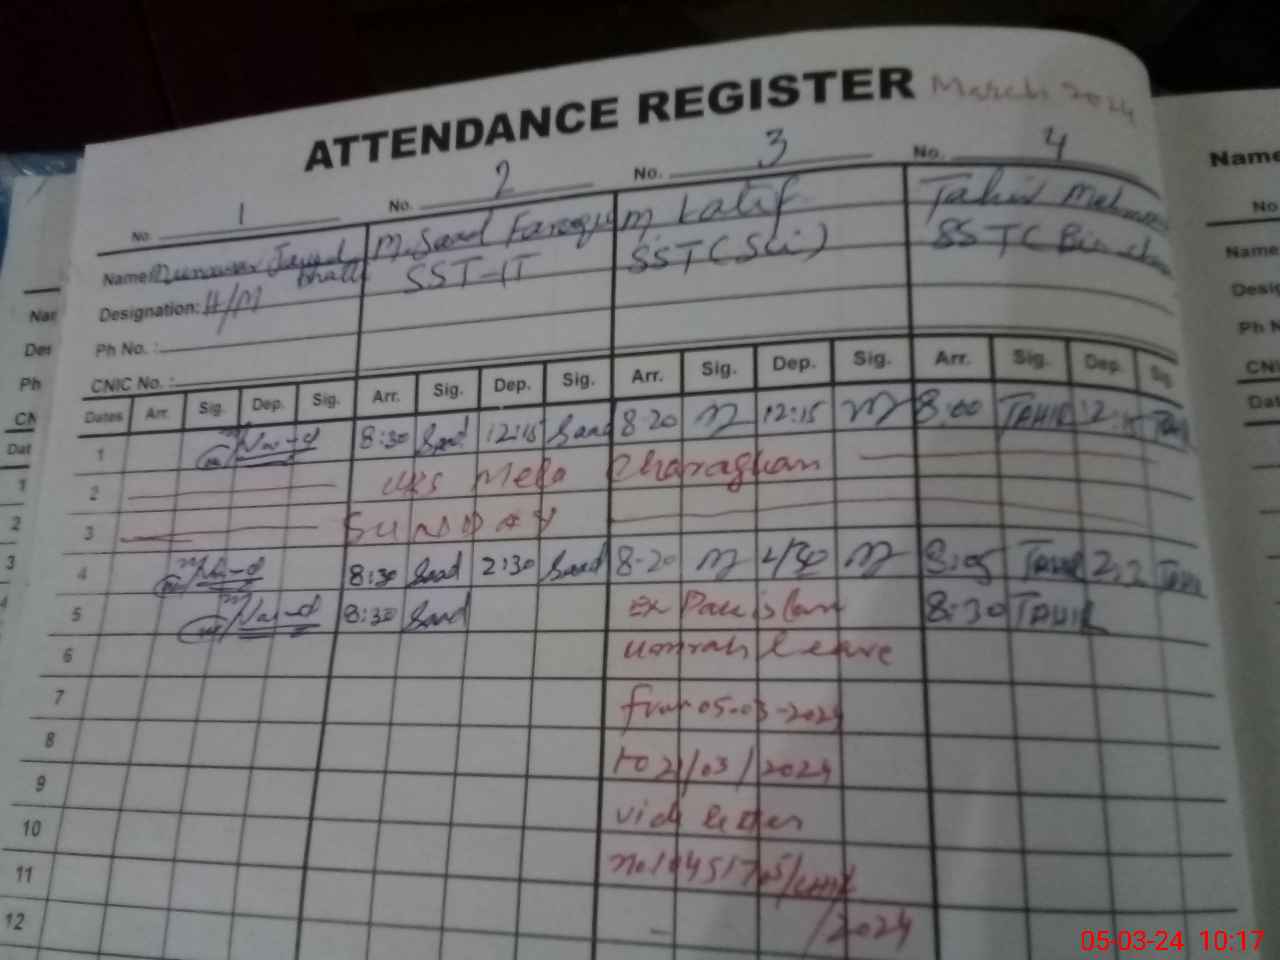 ATTENDANCE REGISTER March 2024
No. 1 No. 2 No. 3 No. 4
Name Munawar Javed Bhatti M. Saad Farooq M Latif Tahir Mehmood
Designation: H/M SST-IT SST (Sci) SST (Bio
Ph No. :
CNIC No. :
Dates Arr. Sig. Dep. Sig. Arr. Sig. Dep. Sig. Arr. Sig. Dep. Sig. Arr. Sig. Dep. Sig
1 8:30 Saad 12:15 Saad 8-20 M 12:15 M 8:00 TAHIR 12:15
2 Urs Mela Charaghan
3 SUNDAY
4 8:30 Saad 2:30 Saad 8-20 M M 8:05 TAHIR
5 8:30 Saad Ex Pakistan 8:30 TAHIR
6 Umrah Leave
7 from 05-03-2024
8 to 21/03/2024
9 vide letter
10
11 /2024
12
Name
No
Name
Desig
Ph N
CNI
Dat
Nar
Des
Ph
CN
Dat
1
2
3
05-03-24 10:17